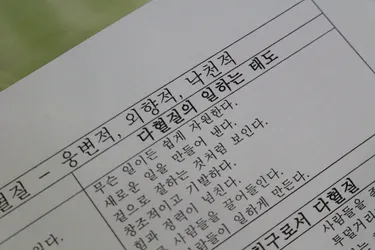 혈질 - 웅변적, 외향적, 낙천적
다혈질의 일하는 태도
무슨 일이든 쉽게 자원한다.
새로운 일을 만들어 낸다.
겉으로 잘하는 것처럼 보인다.
창조적이고 기발하다.
힘과 정력이 넘친다.
사람들을 끌어들인다.
사람들이 일하게 만든다.
구로서 다혈질
사람들을